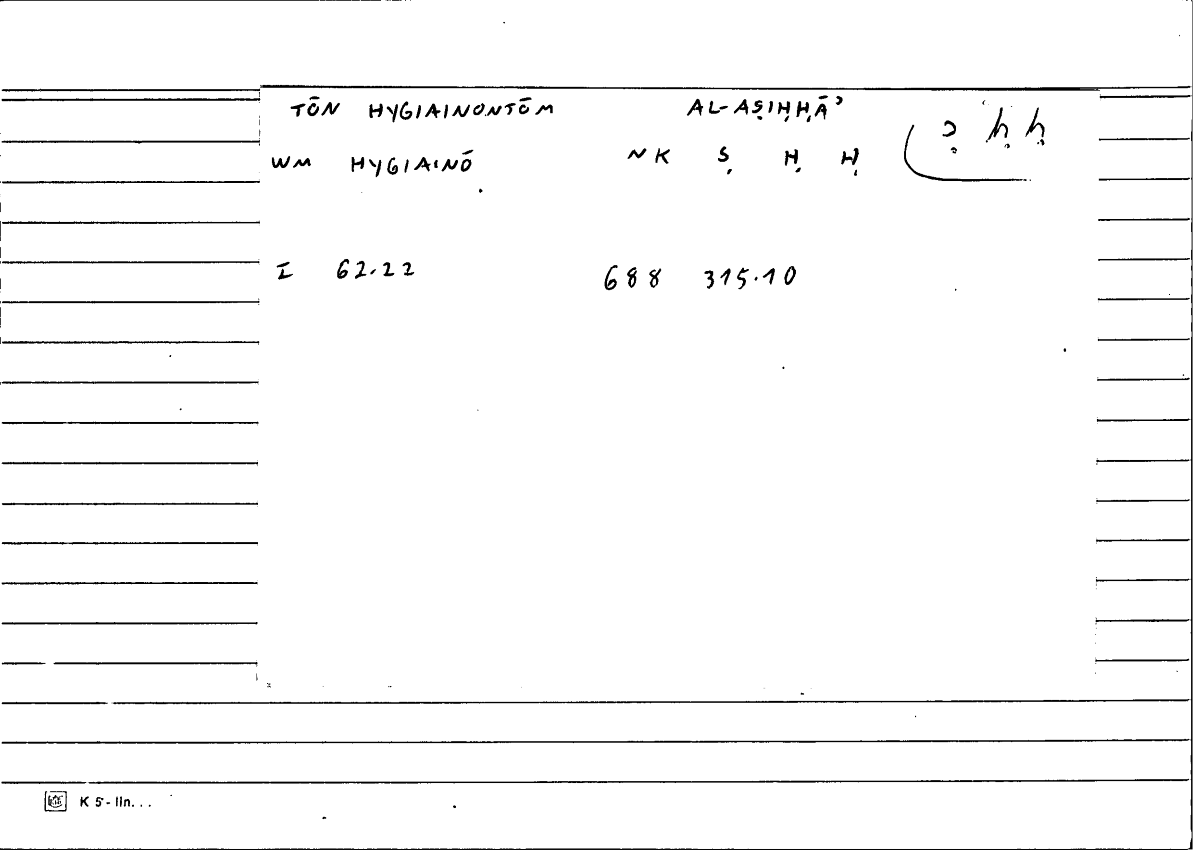 TŌN HYGIAINONTŌM AL-AṢIḤḤĀʾ
WM HYGIAINŌ NK Ṣ Ḥ Ḥ ṣ ḥ ḥ
I 62.22 688 315.10
K 5 - lin. . .